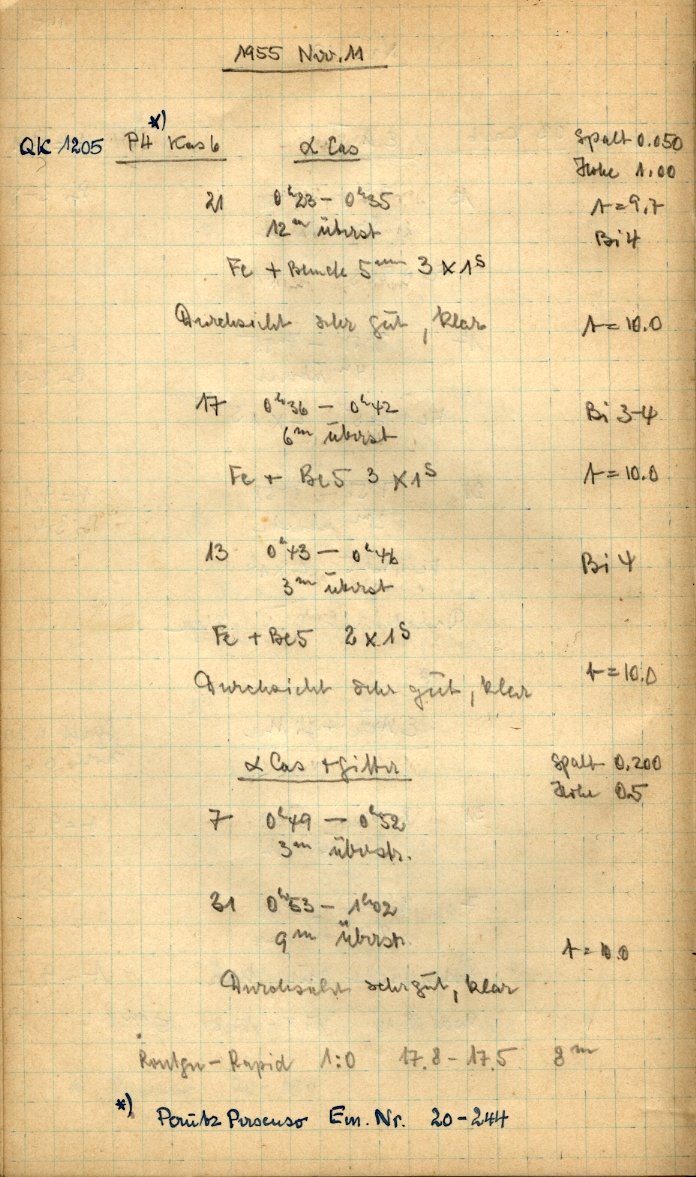 1955 Nov. 11
QK 1205 P4 *) Kas 6 α Cas Spalt 0.050
Höhe 1.00
21 0ʰ23 – 0ʰ35 t = 9.7
12ᵐ überst Bi 4
Fe + 5ᵐᵐ 3 × 1ˢ
Durchsicht sehr gut, klar t = 10.0
17 0ʰ36 – 0ʰ42 Bi 3-4
6ᵐ überst
Fe + Be 5 3 × 1ˢ t = 10.0
13 0ʰ43 – 0ʰ46 Bi 4
3ᵐ überst
Fe + Be 5 2 × 1ˢ
Durchsicht sehr gut, klar t = 10.0
α Cas + Gitter Spalt 0.200
Höhe 0.5
7 0ʰ49 – 0ʰ52
3ᵐ überstr.
31 0ʰ53 – 1ʰ02
9ᵐ überstr. t = 10.0
Durchsicht sehr gut, klar
Röntgen-Rapid 1:0 17.8 – 17.5 8ᵐ
*) Perutz Persenso Em. Nr. 20-244